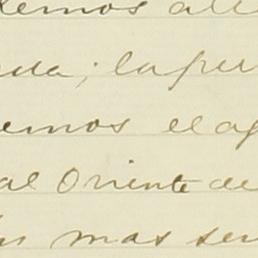 emos al
da; la
emos el ag
al Oriente de
mas sen